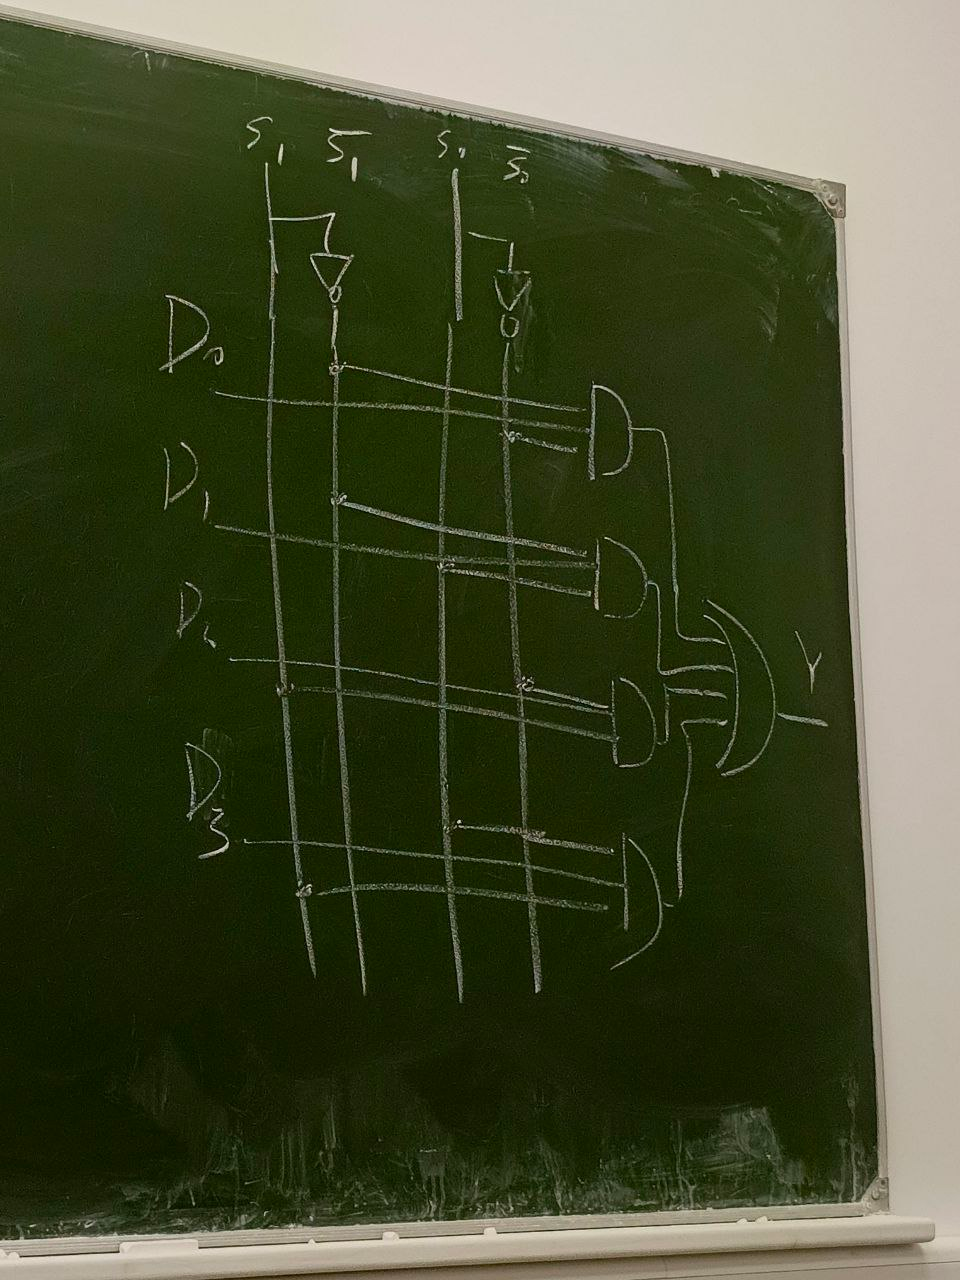 S₁ S̅₁ S₀ S̅₀
D₀
D₁
D₂
Y
D₃